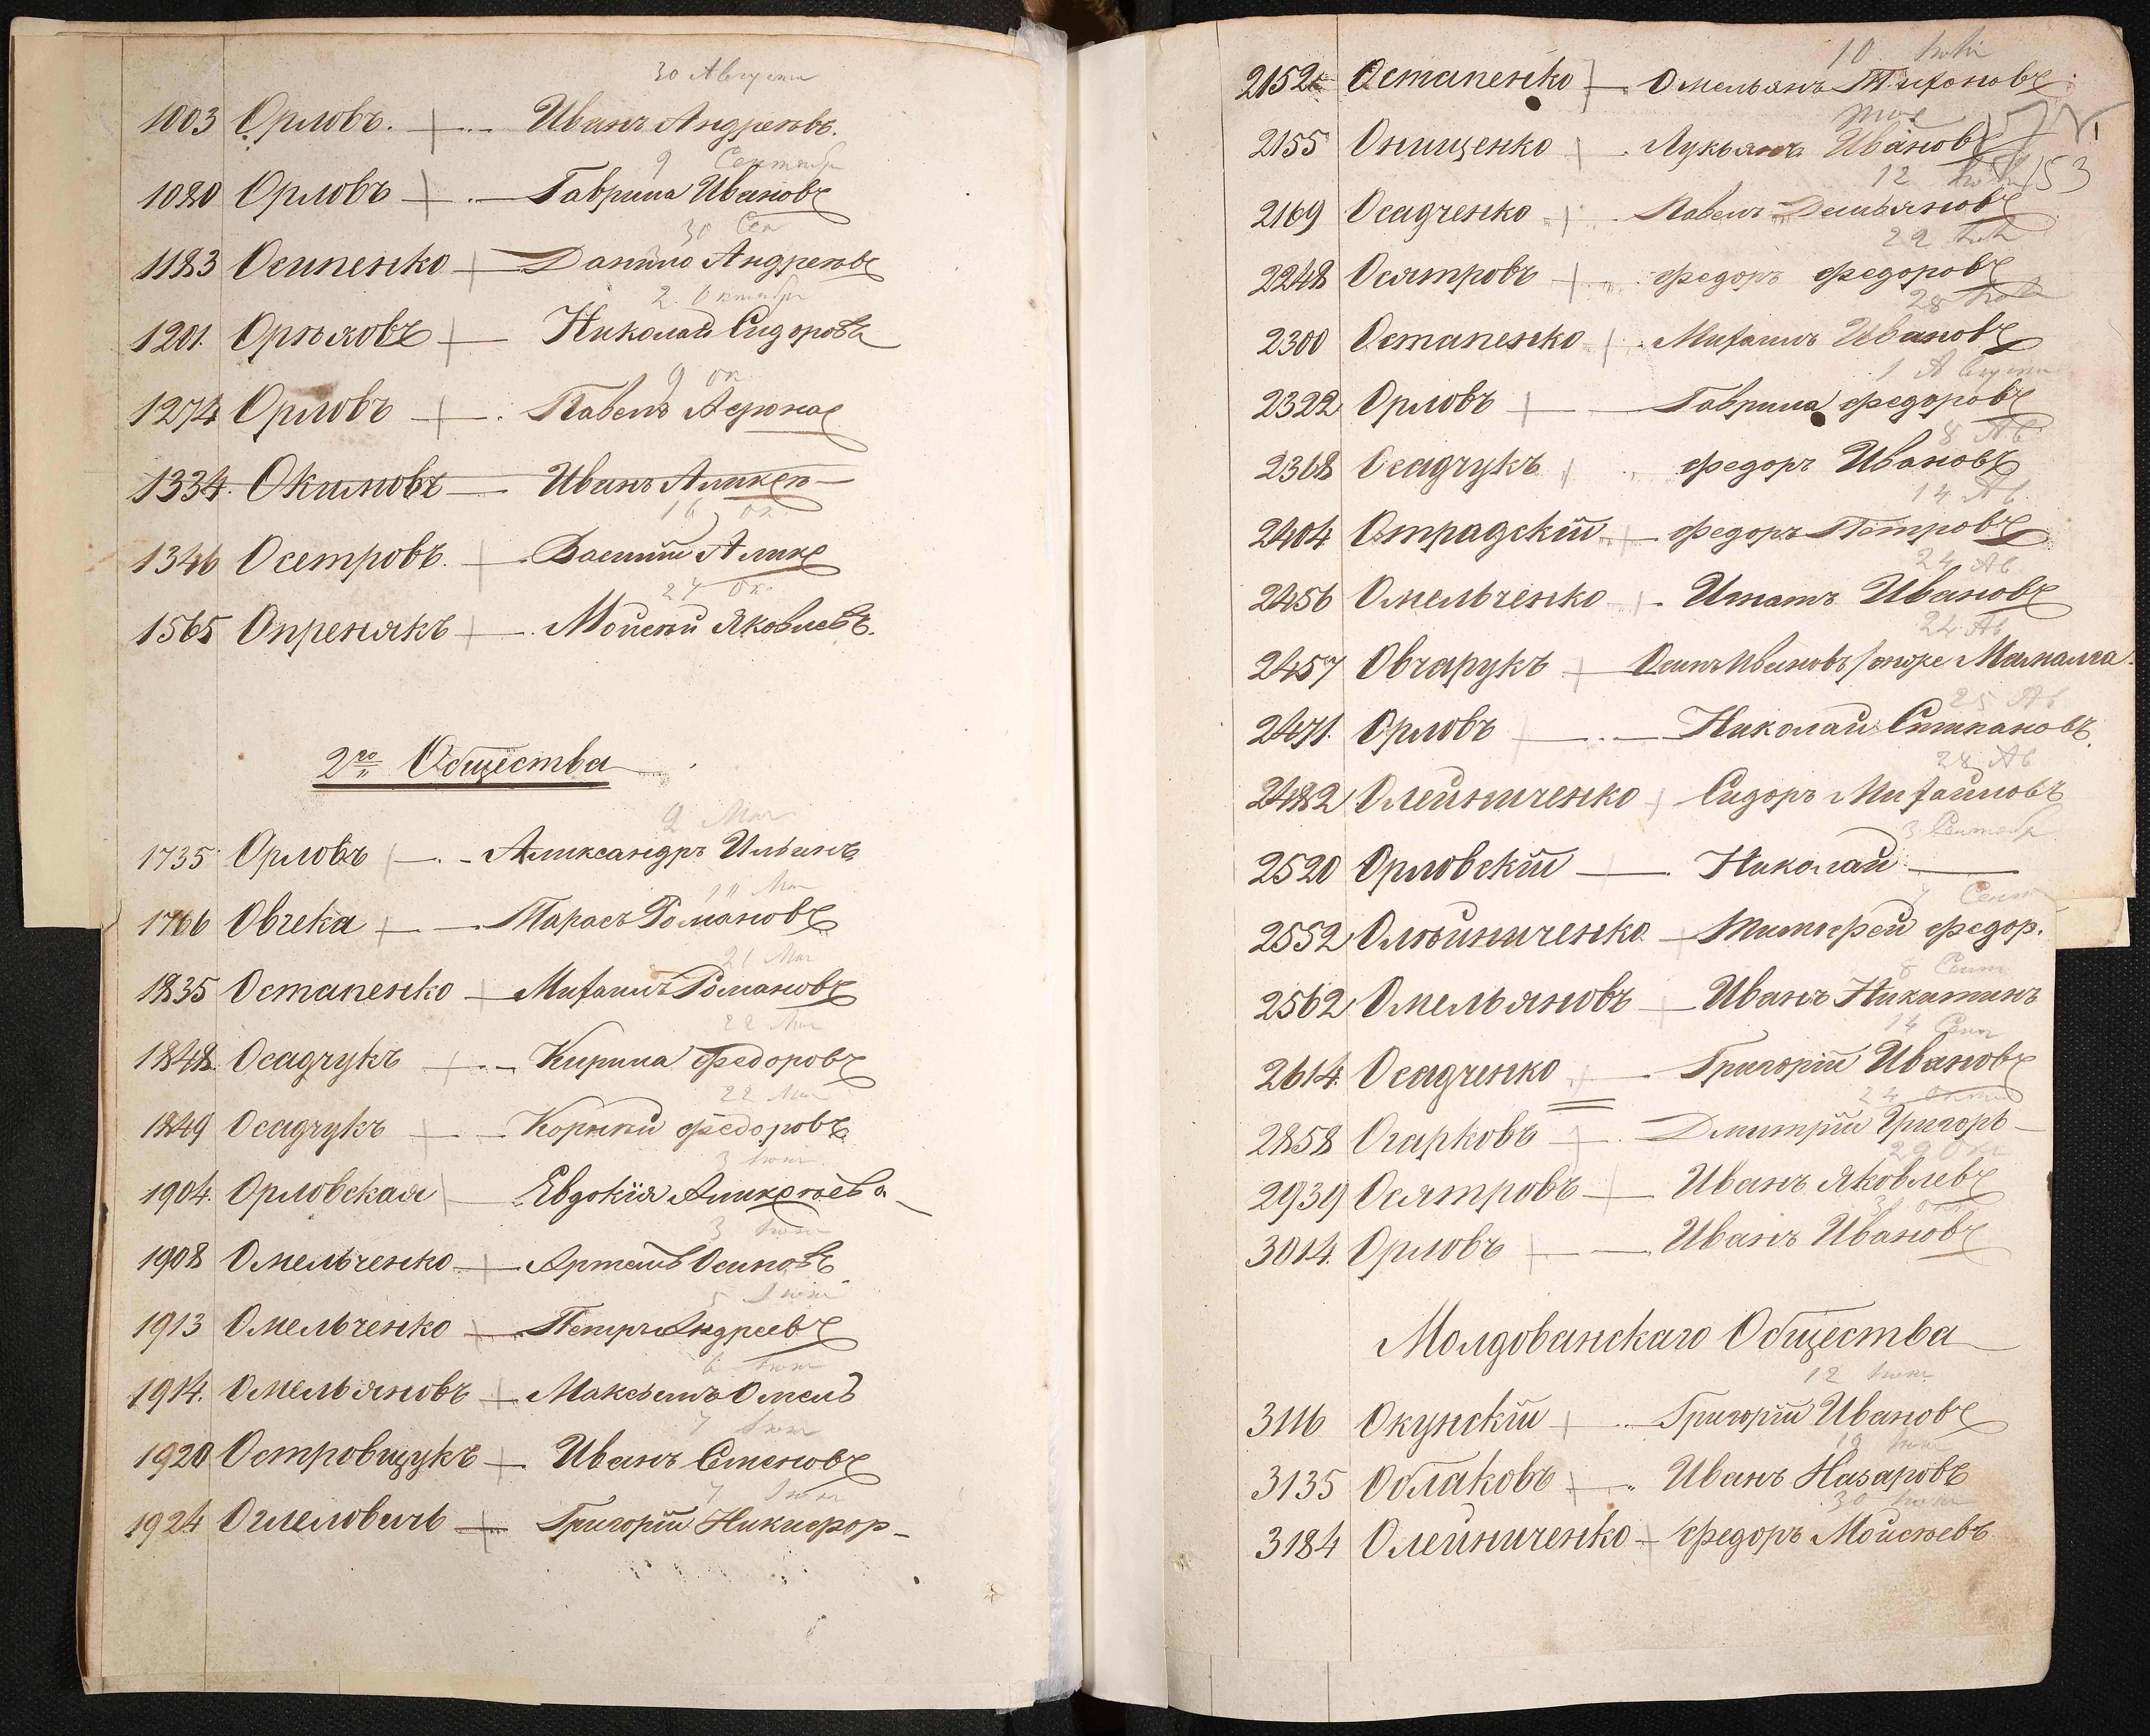 30 Августа
1003 Орловъ. Иванъ Андреевъ.
9 Сентябр
1020 Орловъ Гаврила Ивановъ
30 Сен
1183 Осипенко Данило Андреевъ
2 Октября
1201. Орѣховъ Николай Сидоровъ
9 Ок
1274 Орловъ Павелъ
1334. Окимовъ Иванъ Алексѣ
16 Ок.
1346 Осетровъ. Василій Алекс
27 Ок
1565 Опренякъ Моисей Яковлевъ.
2го Общества
9 Мая
1735 Орловъ Александръ Ильинъ
Мая
1766 Овчека Тарасъ Романовъ
21 Мая
1835 Остапенко Михаилъ Романовъ
22 Мая
1848 Осадчукъ Кирила Федоровъ
22 Мая
1849 Осадчукъ Корней Федоровъ
3 Іюня
1904. Орловская Евдокія Алексѣева
3 Іюня
1908 Омельченко Артемъ Осиповъ
5 Іюня
1913 Омельченко Петръ Андреевъ
6 Іюня
1914. Омельяновъ Максимъ Омель
7 Іюня
1920 Островщукъ Иванъ Семеновъ
7 Іюня
1924 Огмеловичь Григорій Никифор
10 Іюля
2152 Остапенко Омельянъ Тихоновъ
тоже
2155 Онищенко Лукьянъ Ивановъ
12 Іюля 153
2169 Осадченко Павелъ Демьяновъ
22 Іюля
2248 Осятровъ Федоръ Федоровъ
28 Іюля
2300 Остапенко Михаилъ Ивановъ
1 Августа
2322 Орловъ Гаврила Федоровъ
8 Ав
2368 Осадчукъ Федоръ Ивановъ
14 Ав.
2404 Отрадскій Федоръ Петровъ
24 Ав
2456 Омельченко Игнатъ Ивановъ
24 Ав
2457 Овчарукъ Осипъ Ивановъ /онже Мамалга.
25 Ав
2471. Орловъ Николай Степановъ.
28 Ав
2482 Олейниченко Сидоръ Михайловъ
3 Сентябр
2520 Орловскій Николай
7 Сент
2552 Олѣйниченко Тимофей Федор.
8 Сент
2562 Омельяновъ Иванъ Никитинъ
14 Сент
2614. Осадченко Григорій Ивановъ
24 Октяб
2858 Огарковъ Дмитрій Григорь
29 Окт
2939 Осятровъ Иванъ Яковлевъ
31 Окт.
3014. Орловъ Иванъ Ивановъ
Молдованскаго Общества
12 Іюня
3116 Окунскій Григорій Ивановъ
19 Іюня
3135 Облаковъ Иванъ Назаровъ
30 Іюня
3184 Олейниченко Федоръ Моисѣевъ